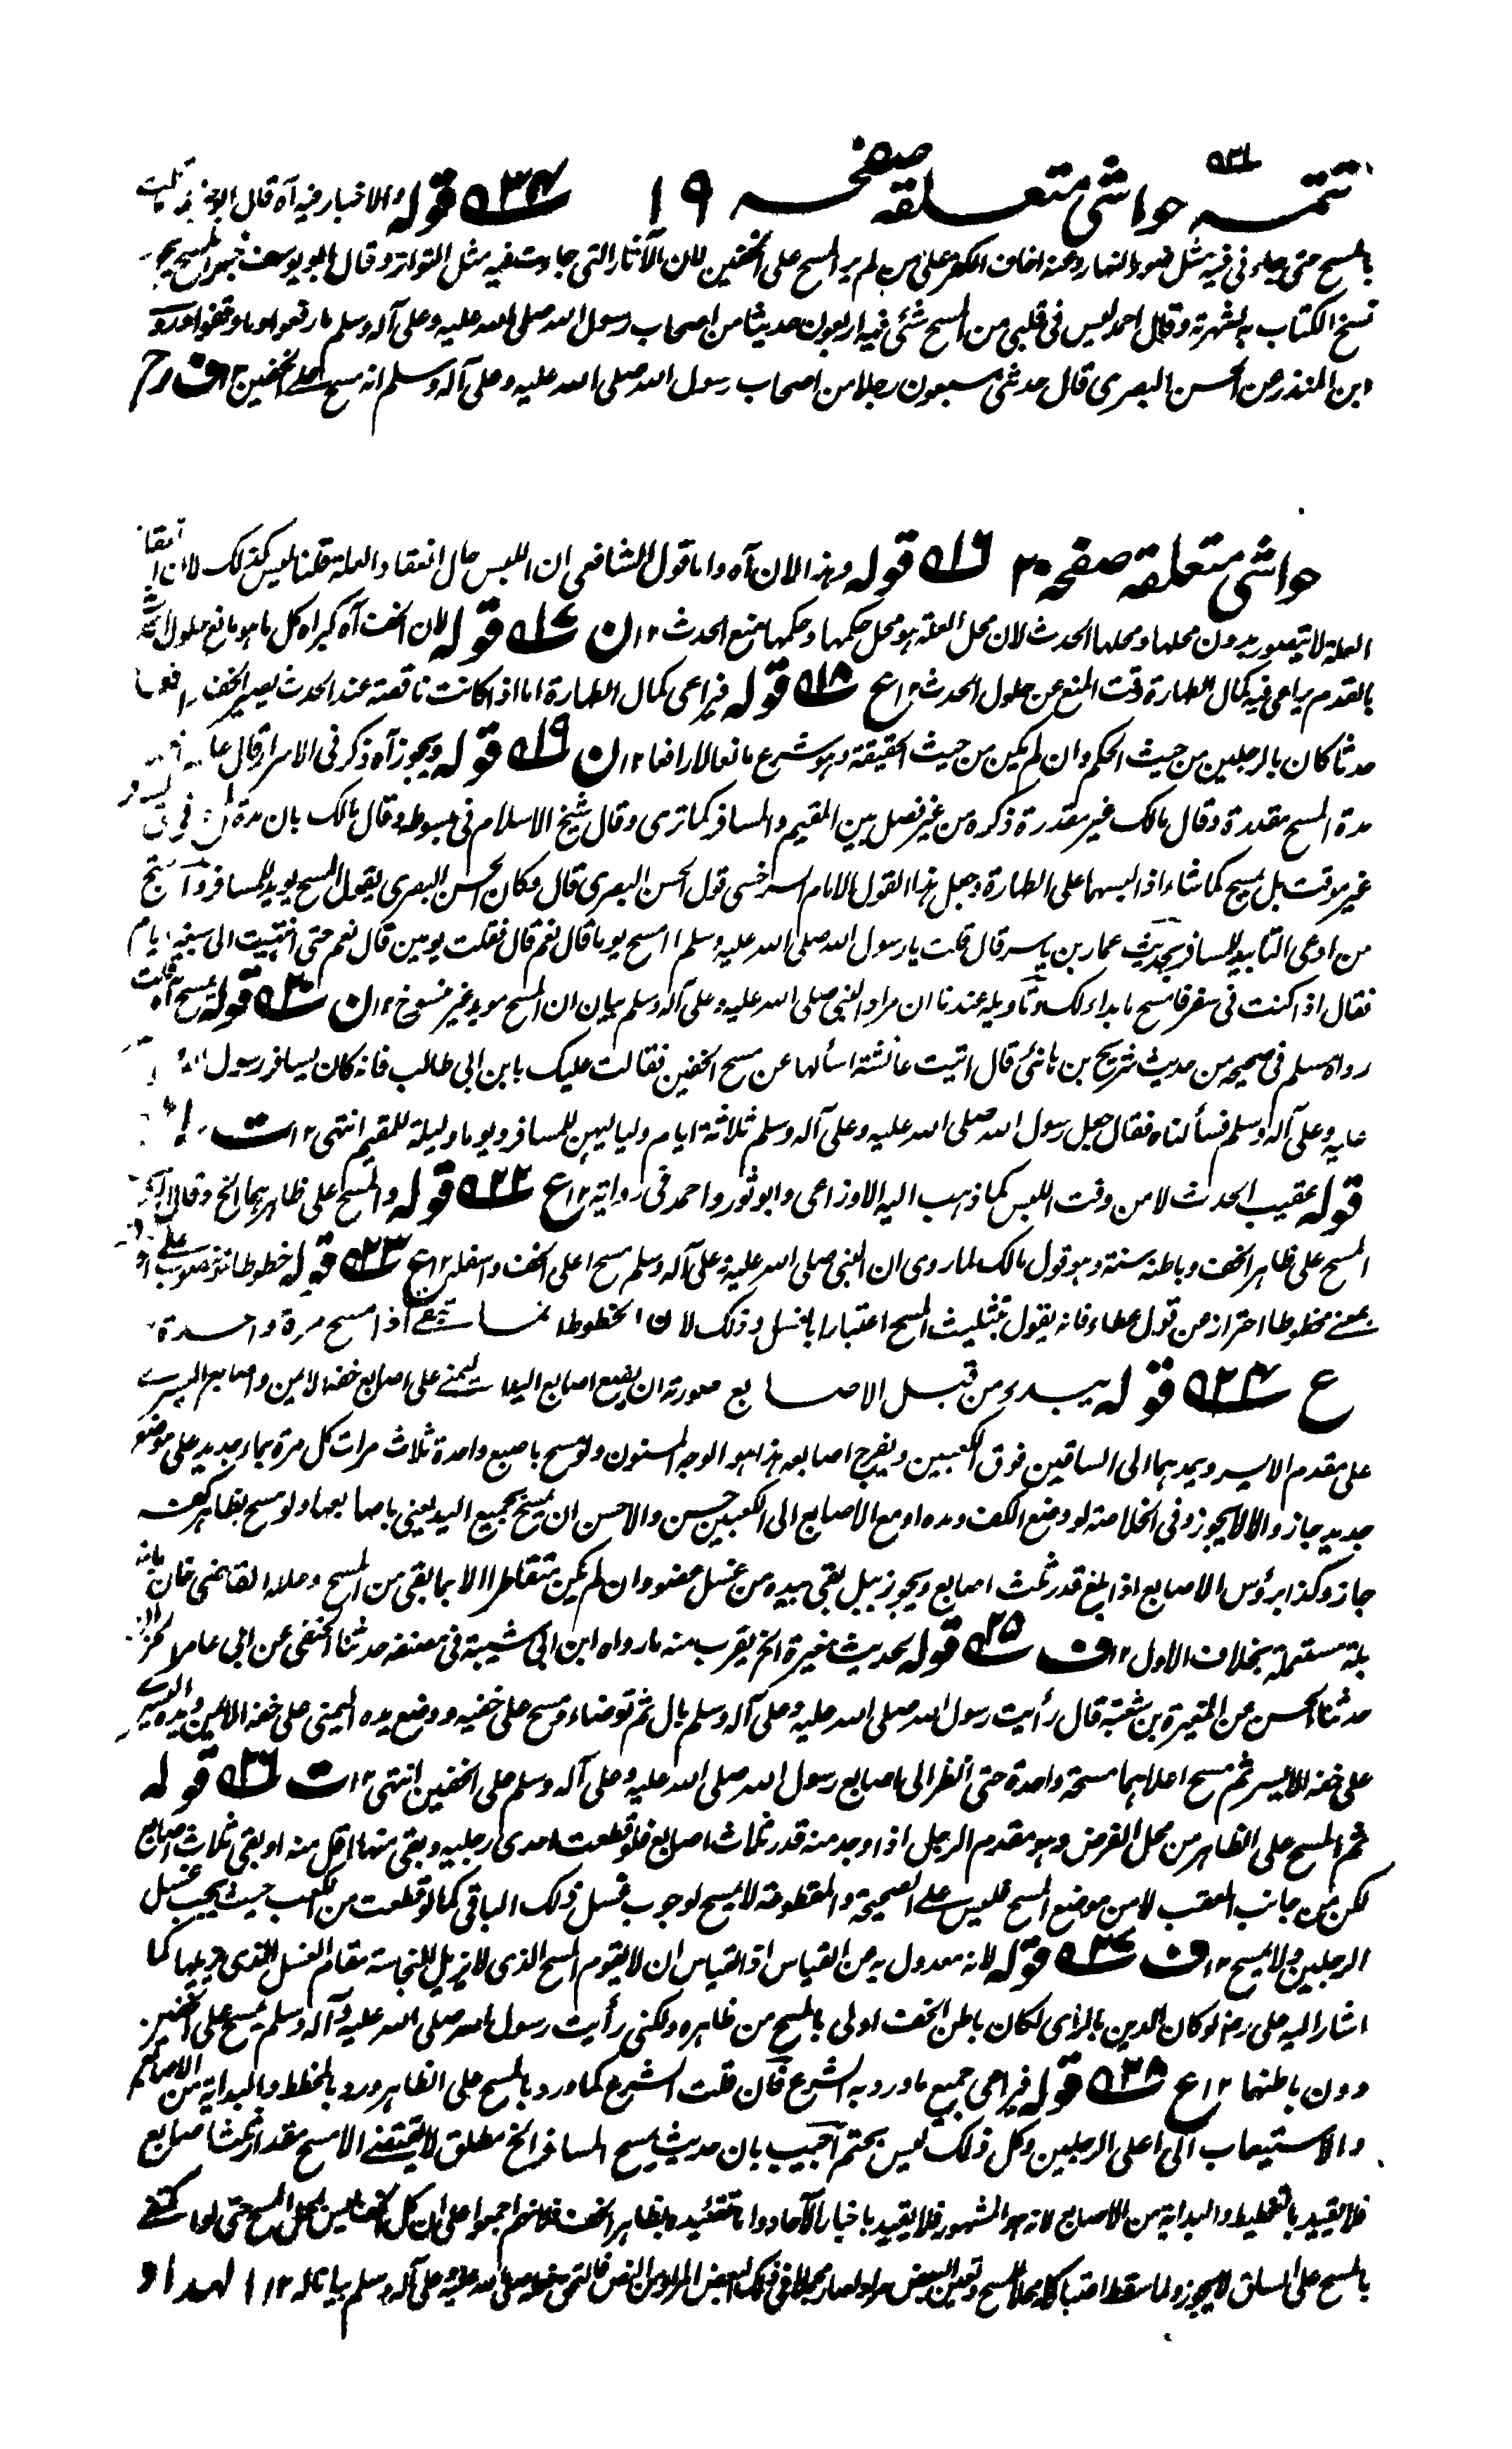 تتمہ حواشی متعلقہ صفحہ ١٩ ٣٤ قوله والاخبار فيه آه قال ابو حنيفة ما قلت
بالمسح حتى جاءنى فيه مثل ضوء النهار وعنه اخاف الكفر على من لم ير المسح على الخفين لان الآثار التى جاءت فيه مثل التواتر وقال ابو يوسف خبر المسح يجوز
نسخ الكتاب به لشهرته وقال احمد ليس فى قلبى من المسح شئى فيه اربعون حديثا من اصحاب رسول الله صلى الله عليه وعلى آله وسلم ما رفعوا وما وقفوا وروى
ابن المنذر عن الحسن البصرى قال حدثنى سبعون رجلا من اصحاب رسول الله صلى الله عليه وعلى آله وسلم انه مسح على الخفين ١٢ ف
حواشی متعلقہ صفحہ ٢٠ ١٦ قوله وهذا لان آه واما قول الشافعى ان اللبس حال انعقاد العلة قلنا ليس كذلك لان
العلة لا يتصور بدون محلها ومحلها الحدث لان محل العلة هو محل حكمها وحكمها منع الحدث ١٢ ن ١٧ قوله لان الخف آه كبراه كل ما هو مانع حلول الحدث
بالقدم يراعى فيه كمال الطهارة وقت المنع عن حلول الحدث ١٢ ع ١٨ قوله فيراعى كمال الطهارة اما اذا كانت ناقصة عند الحدث يصير الخف رافعا
حدثا كان بالرجلين من حيث الحكم وان لم يكن من حيث الحقيقة وهو شرع مانعا لا رافعا ١٢ ن ١٩ قوله ويجوز آه ذكر فى الاسرار قال
مدة المسح مقدرة وقال مالك غير مقدرة ذكره من غير فصل بين المقيم والمسافر كما ترى وقال شيخ الاسلام فى مبسوطه وقال مالك بان مدة
غير موقت بل يمسح كما شاء اذا لبسهما على الطهارة وجعل هذا القول الامام السرخسى قول الحسن البصرى قال وكان الحسن البصرى يقول المسح مؤبد للمسافر واحتج
من ادعى التابيد للمسافر بحديث عمار بن ياسر قال قلت يا رسول الله صلى الله عليه وسلم امسح يوما قال نعم قال فقلت يومين قال نعم حتى انتهيت الى سبعة ايام
فقال اذا كنت فى سفر فامسح ما بدا لك وتاويله عندنا ان مراد النبى صلى الله عليه وعلى آله وسلم بيان ان المسح مؤبد غير منسوخ ١٢ ن ٢٠ قوله يمسح آه قلت
رواه مسلم فى صحيحه من حديث شريح بن هانئى قال اتيت عائشة اسألها عن مسح الخفين فقالت عليك بابن ابى طالب فانه كان يسافر رسول الله
عليه وعلى آله وسلم فسألناه فقال جعل رسول الله صلى الله عليه وعلى آله وسلم ثلاثة ايام ولياليهن للمسافر ويوما وليلة للمقيم انتهى ١٢ ت
قوله عقيب الحدث لا من وقت اللبس كما ذهب اليه الاوزاعى وابو ثور واحمد فى رواية ١٢ ع ٢٢ قوله والمسح على ظاهرهما الخ وقال
المسح على ظاهر الخف وباطنه سنة وهو قول مالك لما روى ان النبى صلى الله عليه وعلى آله وسلم مسح اعلى الخف واسفله ١٢ ع ٢٣ قوله خطوطا منصوب على
بمعنے مخطوطا احتراز من قول عطاء فانه يقول بتثليث المسح اعتبارا بالغسل وذلك لان الخطوط انما تبقے اذا مسح مرة واحدة
ع ٢٤ قوله يبدء من قبل الاصابع صورته ان يضع اصابع اليد اليمنے على اصابع خفه الايمن واصابع اليسرے
على مقدم الايسر ويمدهما الى الساقين فوق الكعبين ويفرج اصابعه هذا هو الوجه المسنون ولو مسح باصبع واحدة ثلاث مرات كل مرة بماء جديد على موضع
جديد جاز والا لا يجوز وفى الخلاصة لو وضع الكف ومده او مع الاصابع الى الكعبين حسن والاحسن ان يمسح بجميع اليد يعنى باصابعها ولو مسح بظاهر كفه
جاز وكذا برؤس الاصابع اذا بلغ قدر ثلث اصابع ويجوز ببلل بقى بيده من غسل عضو وان لم يكن متقاطرا لا بما بقى من المسح وعلله القاضى خان بانه
بلة مستعملة بخلاف الاول ١٢ ف ٢٥ قوله لحديث مغيرة الخ يقرب منه ما رواه ابن ابى شيبة فى مصنفه حدثنا الحنفى عن ابى عامر الخزاز
حدثنا الحسن عن المغيرة بن شعبة قال رأيت رسول الله صلى الله عليه وعلى آله وسلم بال ثم توضاء ومسح على خفيه ووضع يده اليمنى على خفه الايمن ويده اليسرے
على خفه الايسر ثم مسح اعلاهما مسحة واحدة حتى انظر الى اصابع رسول الله صلى الله عليه وعلى آله وسلم على الخفين انتهى ١٢ ت ٢٦ قوله
ثم المسح على الظاهر من محل الفرض وهو مقدم الرجل اذا وجد منه قدر ثلاث اصابع فلو قطعت احدى رجليه وبقى منها اقل منه او بقى ثلاث اصابع
لكن من جانب العقب لا من موضع المسح فلبس على الصحيحة والمقطوعة لا يمسح لوجوب غسل ذلك الباقى كما لو قطعت من الكعب حيث يجب غسل
الرجلين ولا يمسح ١٢ ف ٢٧ قوله لانه معدول به من القياس اذ القياس ان لا يقوم المسح الذى لا يزيل النجاسة مقام الغسل الذى يزيلها كما
اشار اليه على رض لو كان الدين بالراى لكان باطن الخف اولى بالمسح من ظاهره ولكنى رأيت رسول الله صلى الله عليه وآله وسلم يمسح على الخفين
دون باطنهما ١٢ ع ٢٨ قوله فيراعى جميع ما ورد به الشرع فان قلت الشرع كما ورد بالمسح على الظاهر ورد بالخطط والبداية من الاصابع
والاستيعاب الى اعلى الرجلين وكل ذلك ليس بحتم اجيب بان حديث يمسح المسافر الخ مطلق لا يقتضے الا مسح مقدار ثلث اصابع
فلا يقيد بالتخطيط والبداية من الاصابع لانه هو المشهور فلا يقيد باخبار الآحاد واما تقييده بظاهر الخف فلانهم اجمعوا على ان كل الخف ليس بمحل المسح حتى لو اكتفے
بالمسح على الساق لا يجوز ولما سقط اعتبار كله محلا للمسح وتعين البعض مرادا صار مجملا فى ذلك البعض المراد من النص فالتحق فعله صلى الله عليه وعلى آله وسلم بيانا له ١٢ الهداد